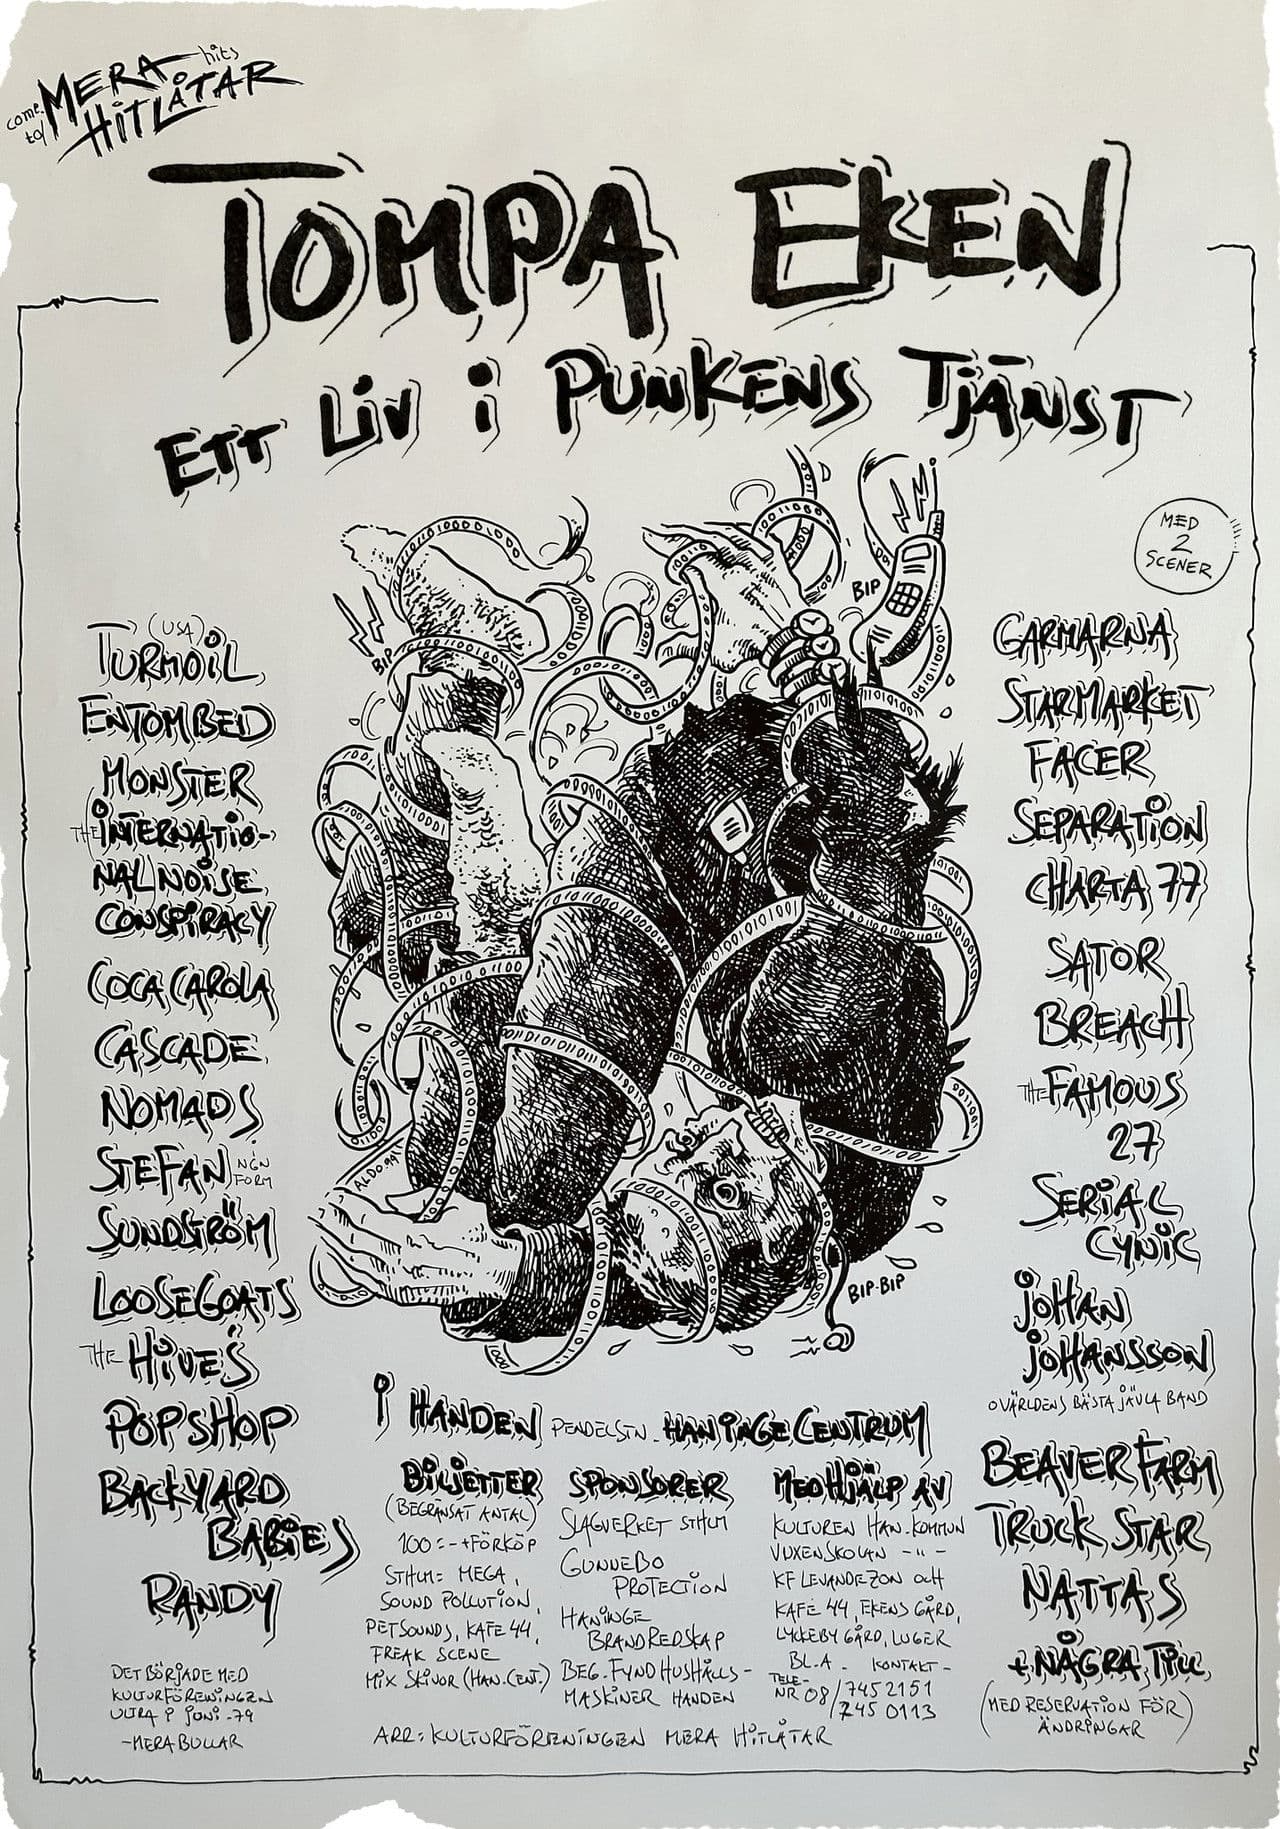 come to/
MERA hits
HITLÅTAR
TOMPA EKEN
ETT LIV I PUNKENS TJÄNST
MED
2
SCENER
(USA)
TURMOIL
ENTOMBED
MONSTER
THE INTERNATIO-
NAL NOISE
CONSPIRACY
COCA CAROLA
CASCADE
NOMADS
STEFAN I NGN FORM
SUNDSTRÖM
LOOSEGOATS
THE HIVES
POPSHOP
BACKYARD
BABIES
RANDY
DET BÖRJADE MED
KULTURFÖRENINGEN
ULTRA I JUNI -79
-MERA BULLAR
BIP
BIP
ALDO.99
BIP-BIP
GARMARNA
STARMARKET
FACER
SEPARATION
CHARTA 77
SATOR
BREACH
THE FAMOUS
27
SERIAL
CYNIC
JOHAN
JOHANSSON
O VÄRLDENS BÄSTA JÄVLA BAND
BEAVER FARM
TRUCK STAR
NATTAS
+ NÅGRA TILL
(MED RESERVATION FÖR
ÄNDRINGAR)
I HANDEN PENDELSTN. HANINGE CENTRUM
BILJETTER
(BEGRÄNSAT ANTAL)
100:- + FÖRKÖP
STHLM: MEGA,
SOUND POLLUTION,
PET SOUNDS, KAFE 44,
FREAK SCENE
MIX SKIVOR (HAN. CENT.)
SPONSORER
SLAGVERKET STHLM
GUNNEBO
PROTECTION
HANINGE
BRANDREDSKAP
BEG. FYND HUSHÅLLS-
MASKINER HANDEN
MED HJÄLP AV
KULTUREN HAN. KOMMUN
VUXENSKOLAN -"-
KF LEVANDE ZON OCH
KAFE 44, EKENS GÅRD,
LYCKEBY GÅRD, LUGER
BL.A. KONTAKT-
TELE-
NR 08/745 2151
/745 0113
ARR: KULTURFÖRENINGEN MERA HITLÅTAR